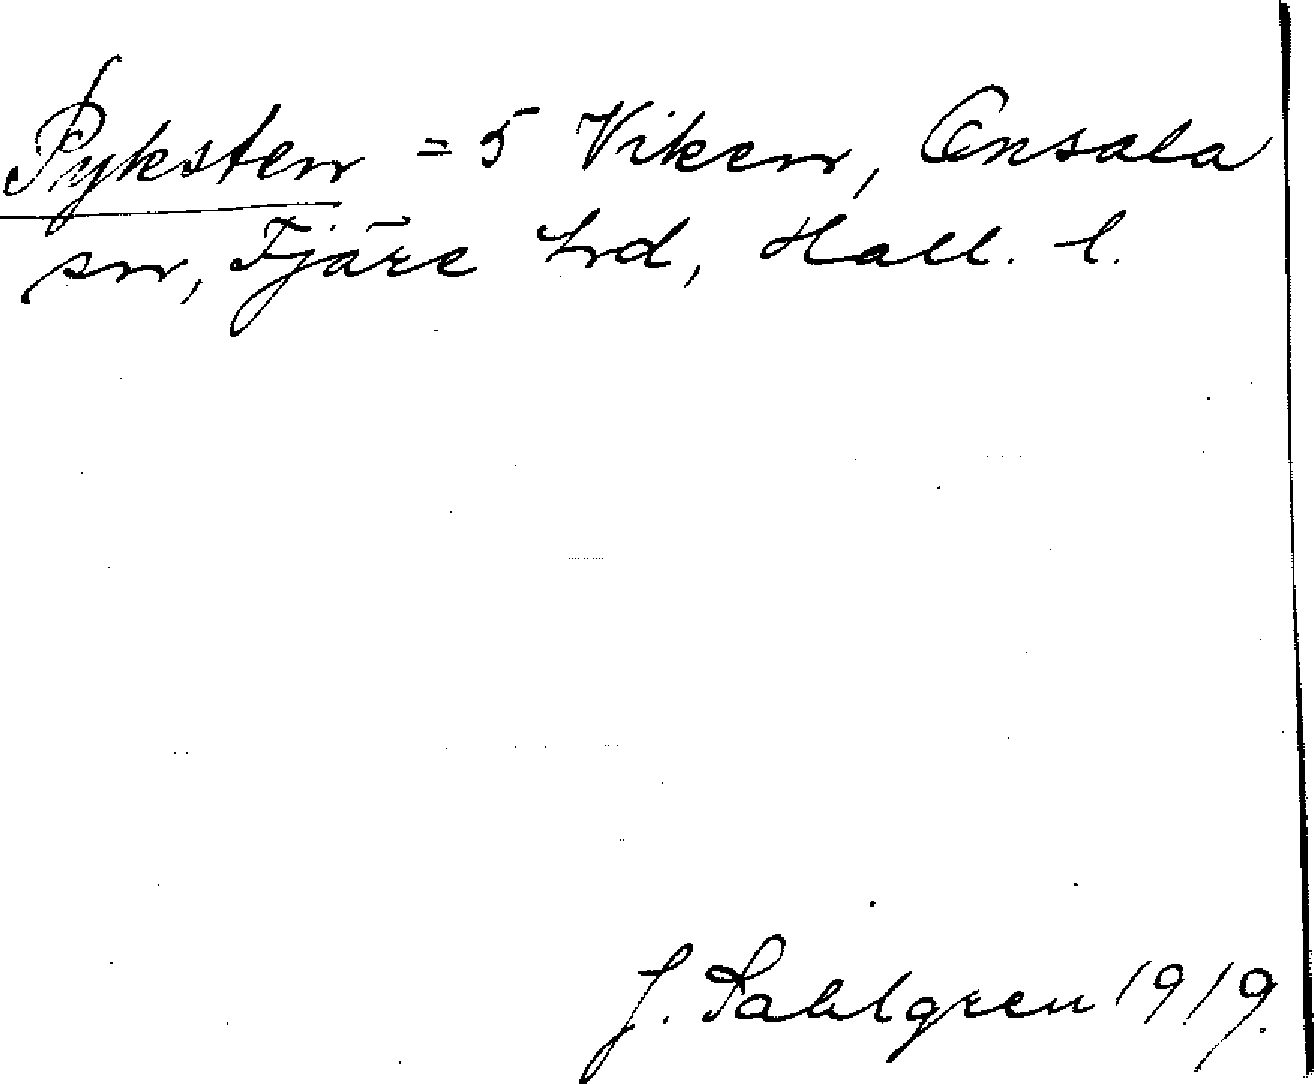 Pyksten = 5 Viken, Onsala
sn, Fjäre hd, Hall. l.
J. Sahlgren 1919.